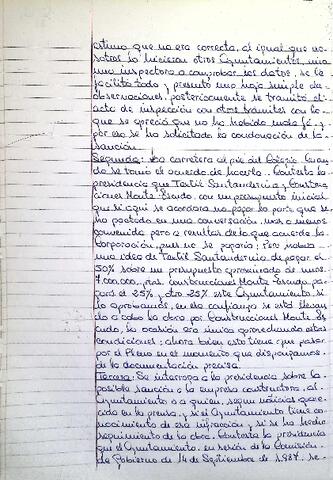 estimo que no era correcta, al igual que no-
sotros lo hicieron otros Ayuntamientos, vino
una inspectora a comprobar los datos, se le
facilitó todo y presentó una hoja simple de
observaciones, posteriormente se tramitó el
acta de inspección con otros tramites con lo
que se apreció que no ha habido mala fé y
por eso se ha solicitado la condonación de la
sanción.
Segunda: La carretera al pie del Colegio. Cuan-
do se tomó el acuerdo de hacerlo. Contesta la
presidencia que Textil Santanderina y Construc-
ciones Monte Escudo, con un presupuesto inicial
que si aqui se acordara no pagar la parte que se
ha pactado en una conversación, mas o menos
convenida pero a resultas de lo que acuerde la
Corporación, pues no se pagaria; Pero habia
una idea de Textil Santanderina de pagar el
50% sobre un presupuesto aproximado de unos
7.000.000,- ptas. Construcciones Monte Escudo pa-
gará el 25% y otro 25% este Ayuntamiento, si
lo aprobamos, en esa confianza se está llevan-
do a cabo la obra por Construcciones Monte Es-
cudo, la ocasión era única aprovechando estas
condiciones; ahora bien esto tiene que pasar
por el Pleno en el momento que dispongamos
de la documentación precisa.
Tercera: Se interroga a la presidencia sobre la
posible sanción a la empresa constructora, al
Ayuntamiento o a quien, segun noticias apare-
cida en la prensa, y si el Ayuntamiento tiene co-
nocimiento de esa infracción y si se ha hecho
seguimiento de la obra. Contesta la presidencia
que el Ayuntamiento, en sesión de la Comisión
de Gobierno de 14 de Septiembre de 1987, se